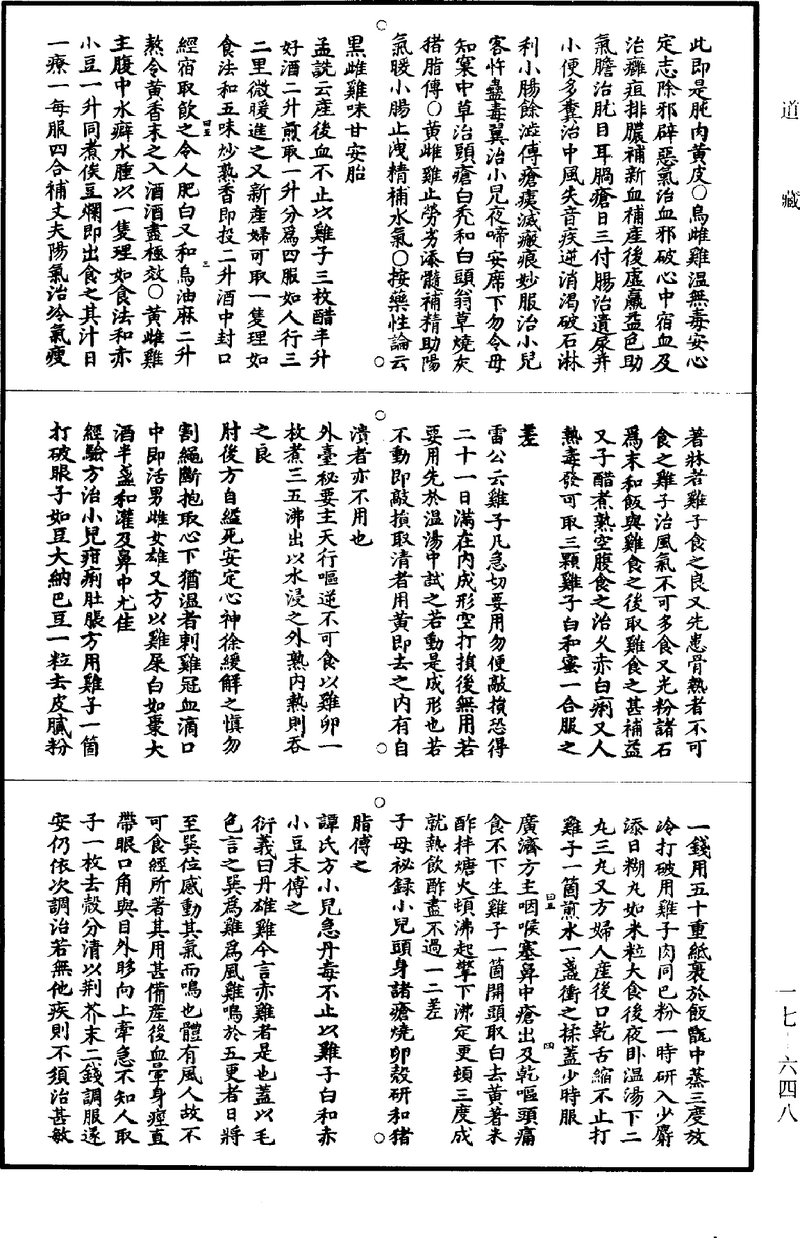 道藏
此即是肫内黄皮○烏雌雞温無毒安心
定志除邪辟惡氣治血邪破心中宿血及
治癰疽排膿補新血補產後虛羸益色助
氣膽治肬目耳𤺋瘡日三付腸治遺尿并
小便多糞治中風失音疾逆消渴破石淋
利小腸餘瀝傅瘡痍滅瘢痕妙服治小兒
客忤蠱毒翼治小兒夜啼安席下勿令母
知窠中草治頭瘡白禿和白頭翁草燒灰
猪脂傅○黄雌雞止勞劣添髓補精助陽
氣暖小腸止洩精補水氣○按藥性論云
黑雌雞味甘安胎
孟詵云産後血不止以雞子三枚醋半升
好酒二升煎取一升分爲四服如人行三
二里微暖進之又新産婦可取一隻理如
食法和五味炒熟香即投二升酒中封口
經宿取飲之令人肥白又和烏油麻二升
熬令黄香末之入酒酒盡極效○黄雌雞
主腹中水癖水腫以一隻理如食法和赤
小豆一升同煮俟豆爛即出食之其汁日
二夜一每服四合補丈夫陽氣治冷氣瘦
著牀若雞子食之良又先患骨熱者不可
食之雞子治風氣不可多食又光粉諸石
爲末和飯與雞食之後取雞食之甚補益
又子醋煮熟空腹食之治久赤白痢又人
熱毒發可取三顆雞子白和蜜一合服之
差
雷公云雞子凡急切要用勿便敲損恐得
二十一日滿在内成形空打損後無用若
要用先於温湯中試之若動是成形也若
不動即敲損取清者用黄即去之内有自
潰者亦不用也
外臺秘要主天行嘔逆不可食以雞卵一
枚煮三五沸出以水浸之外熟内熱則吞
之良
肘後方自縊死安定心神徐緩解之慎勿
割繩斷抱取心下猶温者剌雞冠血滴口
中即活男雌女雄又方以雞屎白如棗大
酒半盞和灌及鼻中尤佳
經驗方治小兒疳痢肚脹方用雞子一箇
打破眼子如豆大納巴豆一粒去皮膩粉
一錢用五十重紙裹於飯甑中蒸三度放
冷打破用雞子肉同巴粉一時研入少麝
添日糊丸如米粒大食後夜卧温湯下二
丸三丸又方婦人産後口乾舌縮不止打
雞子一箇煎水一盞衝之揉蓋少時服
廣濟方主咽喉塞鼻中瘡出及乾嘔頭痛
食不下生雞子一箇開頭取白去黄著米
酢拌煻火頓沸起擎下沸定更頓三度成
就熱飲酢盡不過一二差
子母祕録小兒頭身諸瘡燒卵殻研和猪
脂傅之
譚氏方小兒急丹毒不止以雞子白和赤
小豆末傅之
衍義曰丹雄雞今言赤雞者是也蓋以毛
色言之巽爲雞爲風雞鳴於五更者日將
至巽位感動其氣而鳴也體有風人故不
可食經所著其用甚備産後血暈身痙直
帶眼口角與目外眵向上牽急不知人取
子一枚去殻分清以荆芥末二錢調服遂
安仍依次調治若無他疾則不須治甚敏
四五
三
四五
四
一七—六四八